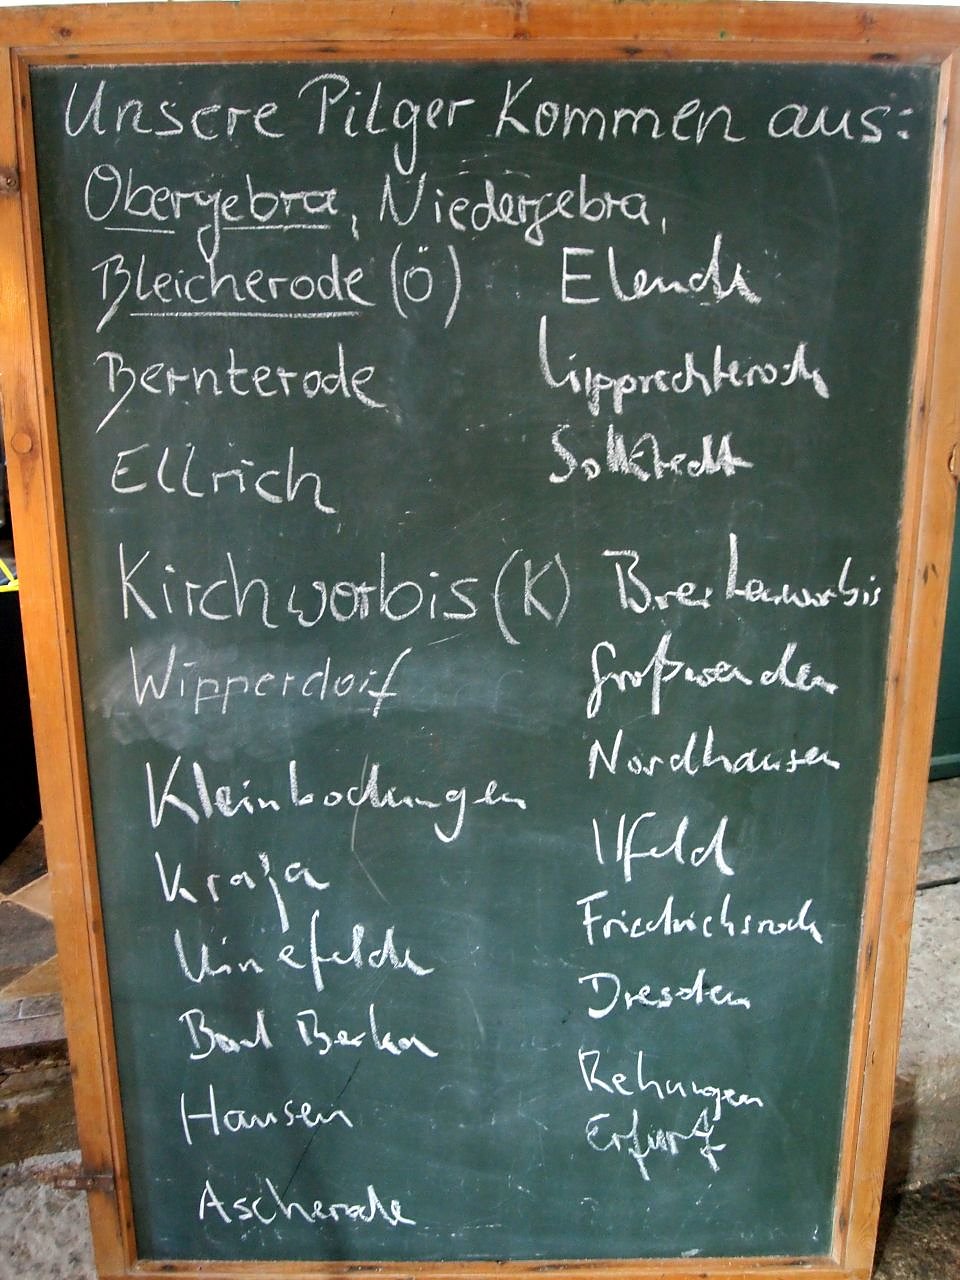 Unsere Pilger Kommen aus:
Obergebra, Niedergebra,
Bleicherode (Ö) Elende
Bernterode Lipprechterode
Ellrich Sollstedt
Kirchworbis (K) Breitenworbis
Wipperdorf Großwenden
Nordhausen
Kleinbodungen
Ilfeld
Kraja
Friedrichsrode
Leinefelde
Dresden
Bad Berka
Rehungen
Hausen
Erfurt
Ascherode